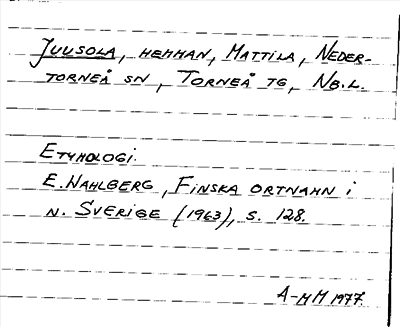 JUUSOLA, HEMMAN, MATTILA, NEDER-
TORNEÅ SN, TORNEÅ TG, NB.L.
ETYMOLOGI.
E. WAHLBERG, FINSKA ORTNAMN I
N. SVERIGE (1963), S. 128.
A-MM 1977.